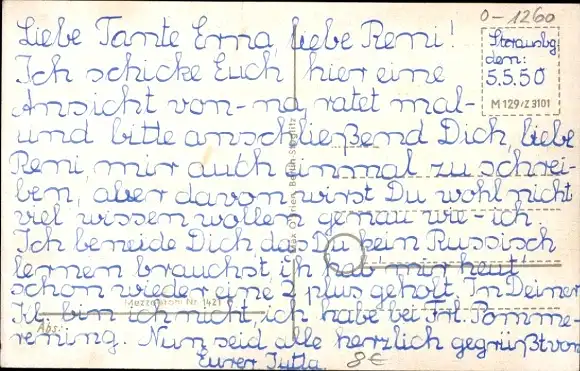 0-1260
Liebe Tante Erna, liebe Reni!
Strausbg.
den:
5.5.50
M 129/Z 3101
Ich schicke Euch hier eine
Ansicht von - na ratet mal -
und bitte anschließend Dich, liebe
Reni, mir auch einmal zu schrei-
ben, aber davon wirst Du wohl nicht
viel wissen wollen genau wie - ich.
Ich beneide Dich das Du kein Russisch
lernen brauchst ich hab' mir heut'
schon wieder eine 2 plus geholt. In Deiner
Kl. bin ich nicht, ich habe bei Frl. Pomme-
rening. Nun seid alle herzlich gegrüßt von
Eurer Jutta.
Abs.:
8€